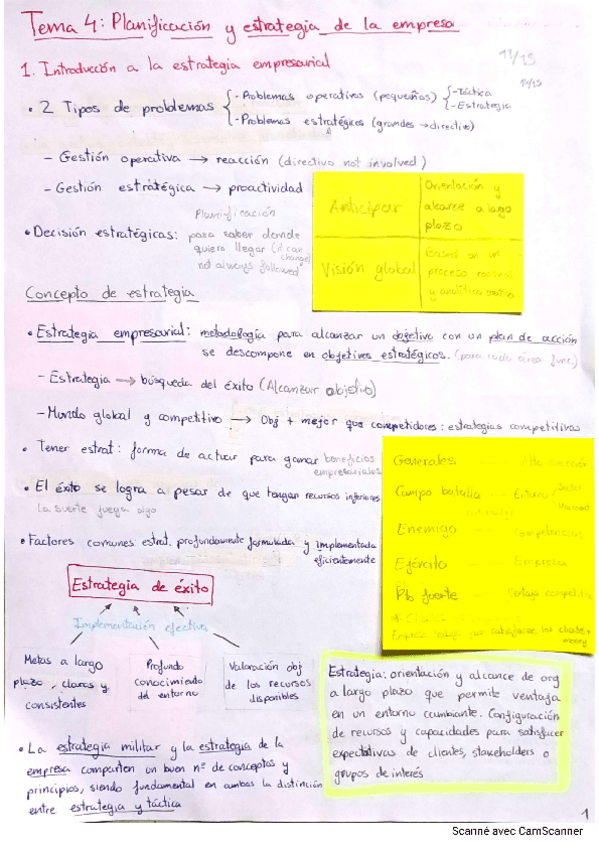 Tema 4: Planificación y estrategia de la empresa
1. Introducción a la estrategia empresarial
• 2 Tipos de problemas
- Problemas operativos (pequeños)
- Táctica
- Estrategic
- Problemas estratégicos (grandes → directivo)
- Gestión operativa → reacción (directivo not involved)
- Gestión estratégica → proactividad
Planificación
• Decisión estratégicas: para saber donde
quiero llegar (it can
change)
not always followed
Anticipar
Orientación y
alcance a largo
plazo
Visión global
proceso racional
y analítico
Concepto de estrategia
• Estrategia empresarial: metodología para alcanzar un objetivo con un plan de acción
se descompone en objetivos estratégicos. (para cada área func.)
- Estrategia → búsqueda del éxito (Alcanzar objetivo)
- Mundo global y competitivo → Obj + mejor que competidores: estrategias competitivas
• Tener estrat: forma de actuar para ganar beneficios
empresariales
• El éxito se logra a pesar de que tengan recursos inferiores
la suerte juega algo
• Factores comunes estrat. profundamente formulada y implementada
eficientemente
Generales Alta dirección
Campo batalla Entorno
Enemigo competencias
Ejército Empresa
Pto fuerte Ventaja competitiva
Estrategia de éxito
Implementación efectiva
Metas a largo
plazo, claras y
consistentes
Profundo
conocimiento
del entorno
Valoración obj
de los recursos
disponibles
Estrategia: orientación y alcance de org
a largo plazo que permite ventaja
en un entorno cambiante. Configuración
de recursos y capacidades para satisfacer
expectativas de clientes, stakeholders o
grupos de interés
• La estrategia militar y la estrategia de la
empresa comparten un buen nº de conceptos y
principios, siendo fundamental en ambas la distinción
entre estrategia y táctica
1
Scanné avec CamScanner